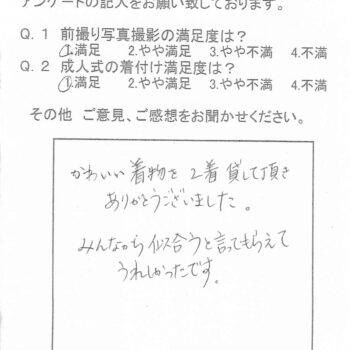 アンケートの記入をお願い致しております。
Q.1 前撮り写真撮影の満足度は?
①満足 2.やや満足 3.やや不満 4.不満
Q.2 成人式の着付け満足度は?
①満足 2.やや満足 3.やや不満 4.不満
その他 ご意見、ご感想をお聞かせください。
かわいい着物を2着貸して頂き
ありがとうございました。
みんなから似合うと言ってもらえて
うれしかったです。